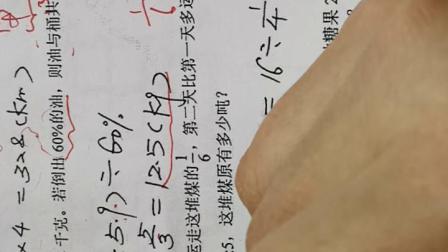 ×4 = 328(km)
千克。若倒出60%的油，则油与桶共
5.9)÷60%
5/3 = 12.5(kg)
运走这堆煤的1/6，第二天比第一天多运
5，这堆煤原有多少吨？
= 16÷1/4
糖果2